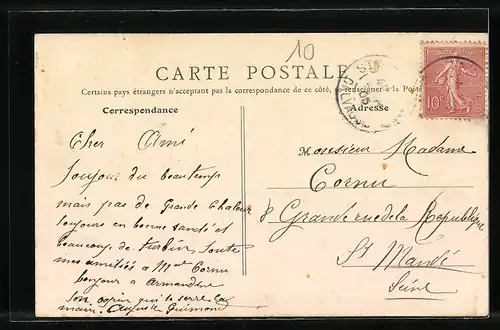 10
CARTE POSTALE
Certains pays étrangers n'acceptant pas la correspondance de ce côté, se renseigner à la Poste
Correspondance
Adresse
10c
Cher Ami
Toujours du beau temps
mais pas de Grande Chaleur
toujours en bonne santé et
beaucoup de turbin, toute
mes amitiés à Mme Cornu
bonjour a Armandine
ton copin qui te serre la
main. Auguste
Monsieur Madame
Cornu
8 Grande rue de la République
St Mandé
Seine